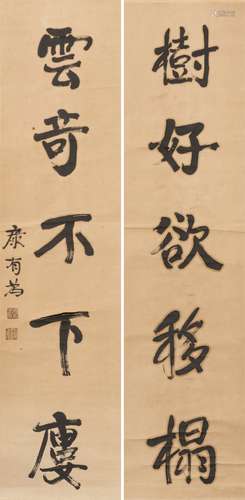 樹好欲移榻
雲竒不下廔
康有為